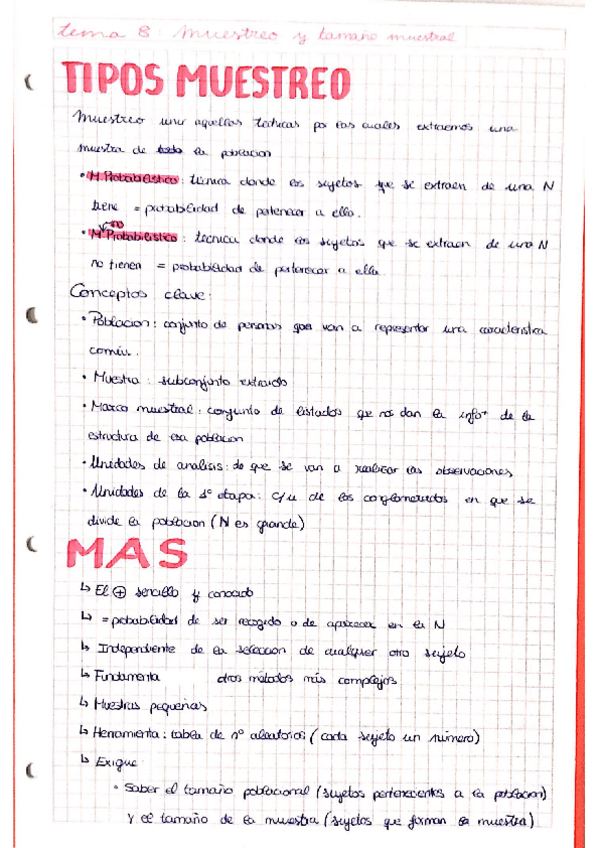 tema 8: muestreo y tamaño muestral
TIPOS MUESTREO
Muestreo aquellas tecnicas por las cuales extraemos una
muestra de la poblacion
• M. Probabilistico: técnica donde los sujetos que se extraen de una N
tiene = probabilidad de pertenecer a ella.
• M. no Probabilistico: tecnica donde los sujetos que se extraen de una N
no tienen = probabilidad de pertenecer a ella.
Conceptos clave:
• Poblacion: conjunto de personas que van a representar una caracteristica
comun.
• Muestra: subconjunto extraido
• Marco muestral: conjunto de listados que nos dan la info⁺ de la
estructura de esa poblacion
• Unidades de analisis: de que se van a realizar las observaciones
• Unidades de la 1ª etapa: c/u de los conglomerados en que se
divide la poblacion (N es grande)
MAS
↳ El ⊕ sencillo y conocido
↳ = probabilidad de ser recogido o de aparecer en la N
↳ Independiente de la seleccion de cualquier otro sujeto
↳ Fundamenta otros métodos más complejos
↳ Muestras pequeñas
↳ Herramienta: tabla de nº aleatorios (cada sujeto un número)
↳ Exige
• Saber el tamaño poblacional (sujetos pertenecientes a la poblacion)
y el tamaño de la muestra (sujetos que forman la muestra)